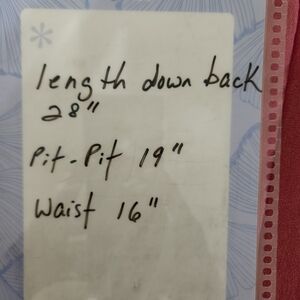 length down back
28"
Pit-Pit 19"
Waist 16"